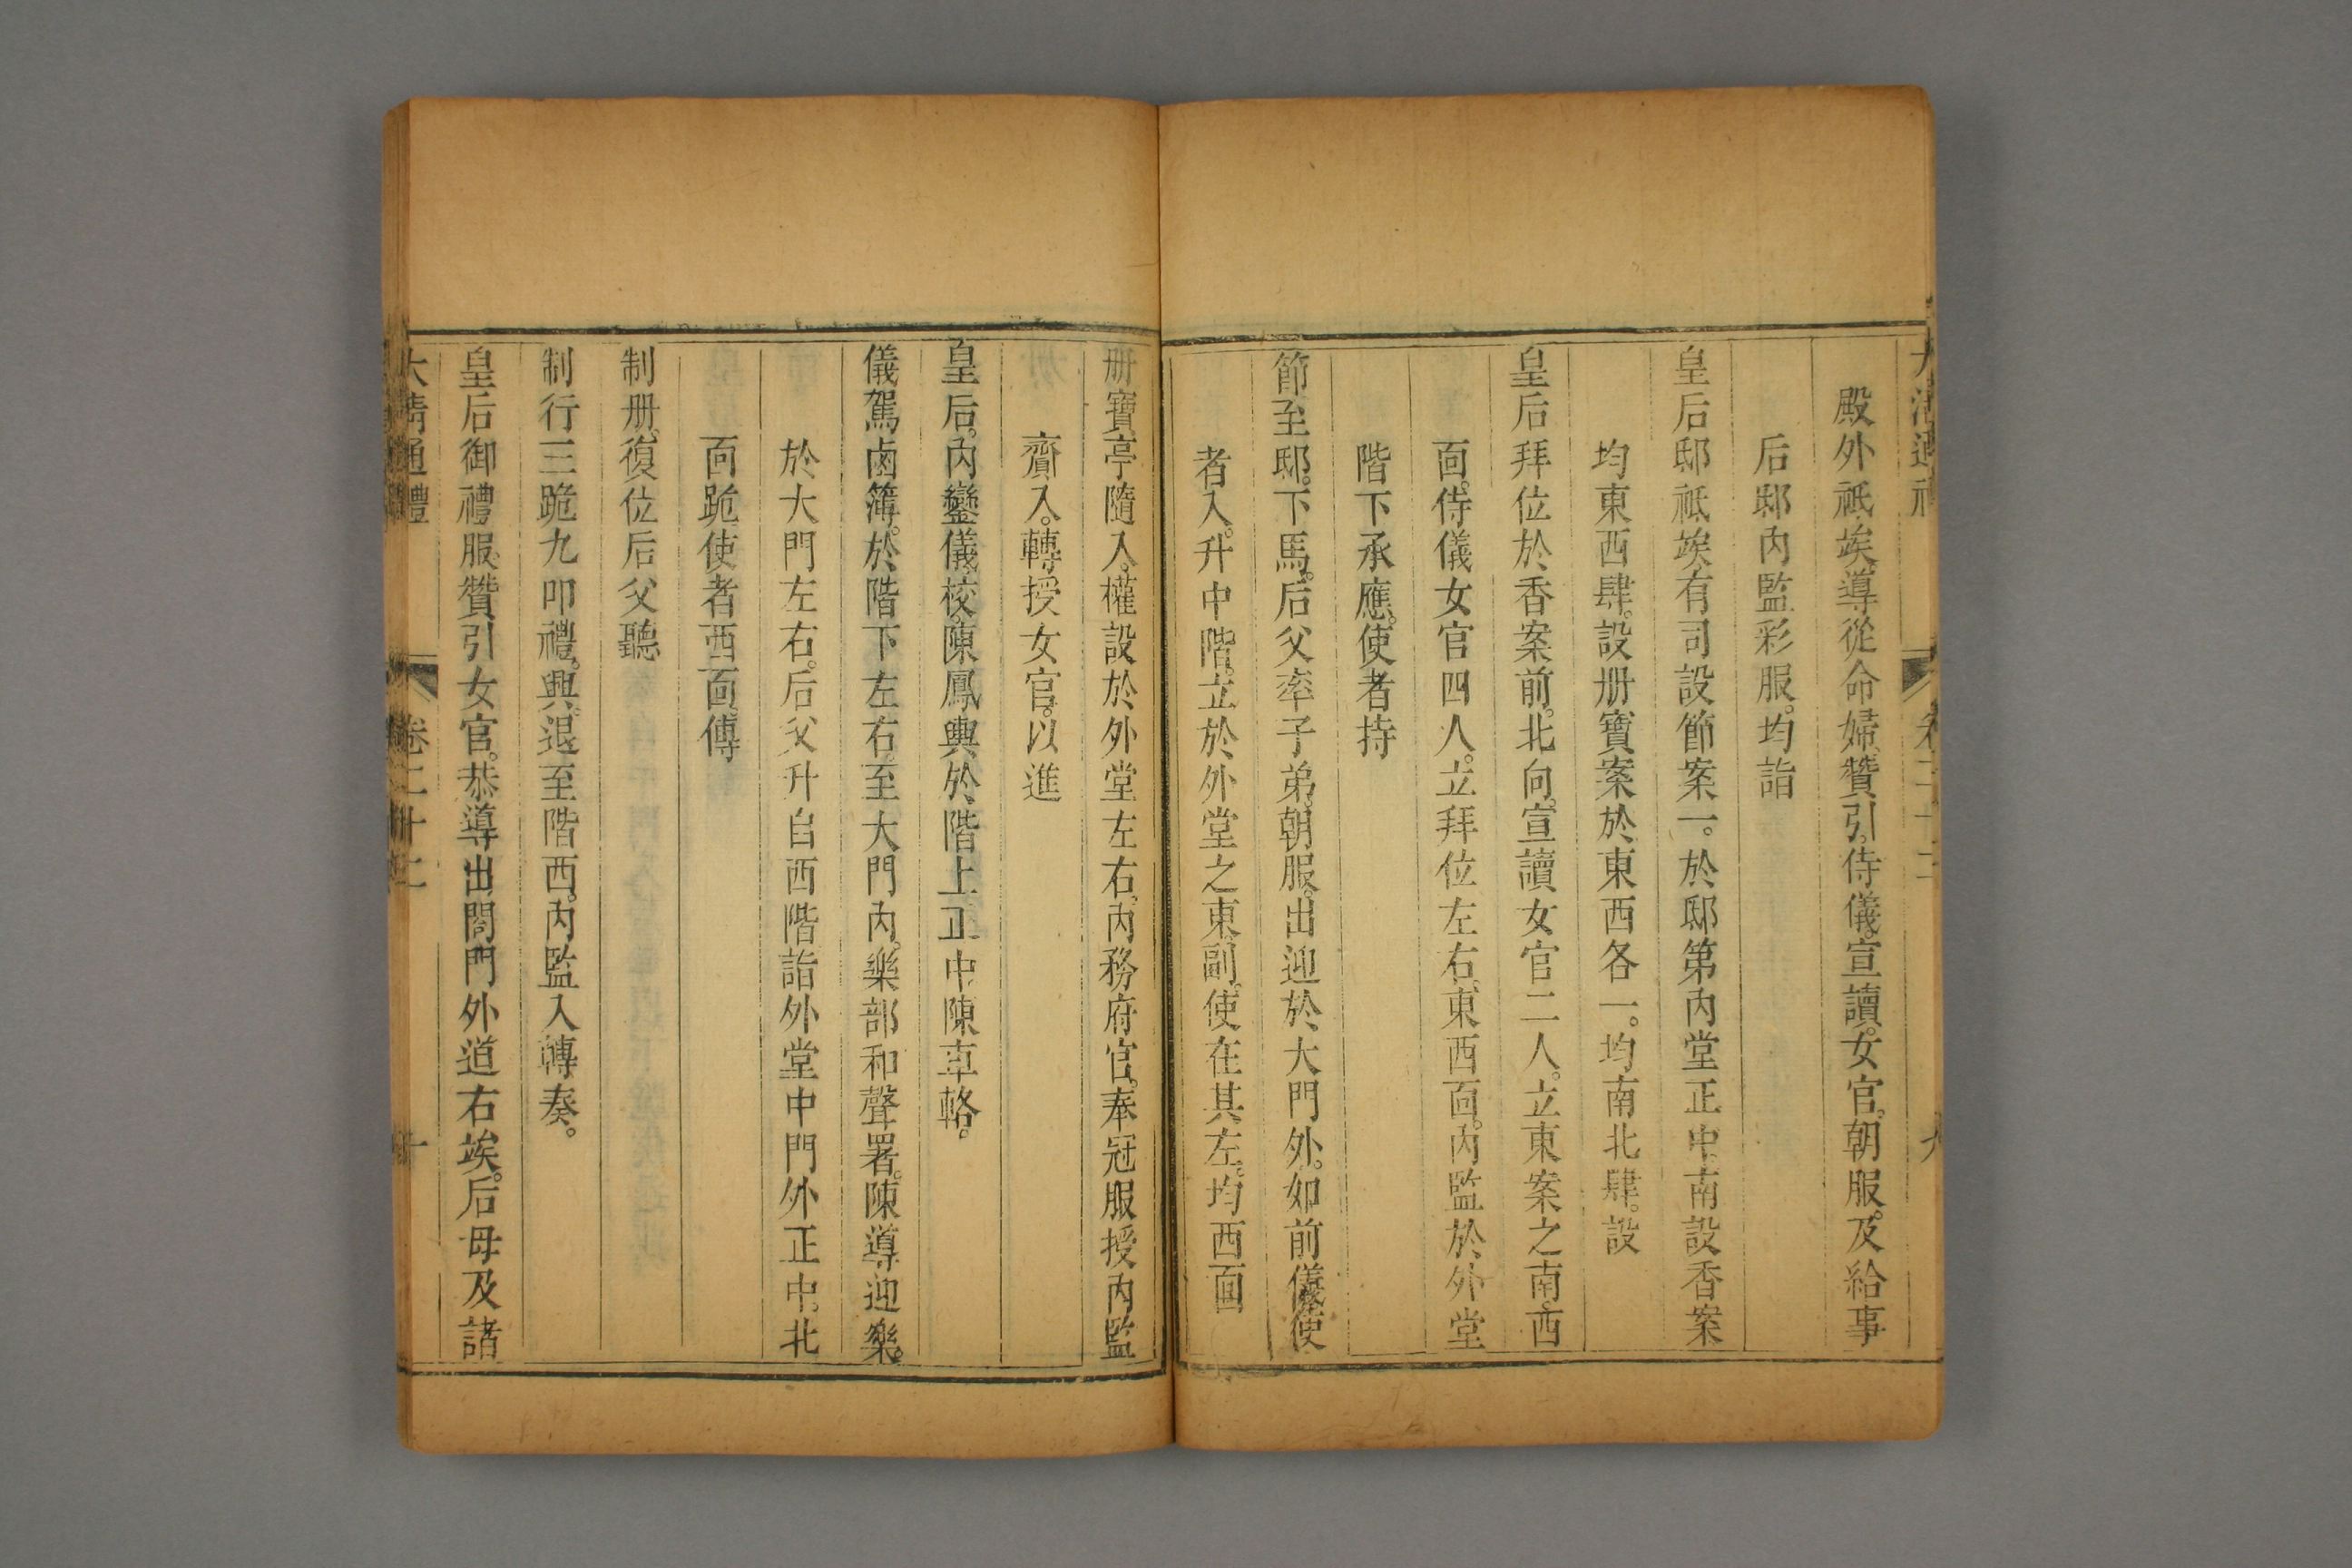 殿外祗竢導從命婦贊引侍儀宣讀女官朝服及給事
后邸內監彩服均詣
皇后邸祗竢有司設節案一於邸第內堂正中南設香案
均東西肆設册寶案於東西各一均南北肆設
皇后拜位於香案前北向宣讀女官二人立東案之南西
面侍儀女官四人立拜位左右東西面內監於外堂
階下承應使者持
節至邸下馬后父率子弟朝服出迎於大門外如前儀使
者入升中階立於外堂之東副使在其左均西面
册寶亭隨入權設於外堂左右內務府官奉冠服授內監
齎入轉授女官以進
皇后內鑾儀校陳鳳輿於階上正中陳車輅
儀駕鹵簿於階下左右至大門內樂部和聲署陳導迎樂
於大門左右后父升自西階詣外堂中門外正中北
面跪使者西面傳
制册復位后父聽
制行三跪九叩禮興退至階西內監入轉奏
皇后御禮服贊引女官恭導出閤門外道右竢后母及諸
大清通禮 卷二十二 十